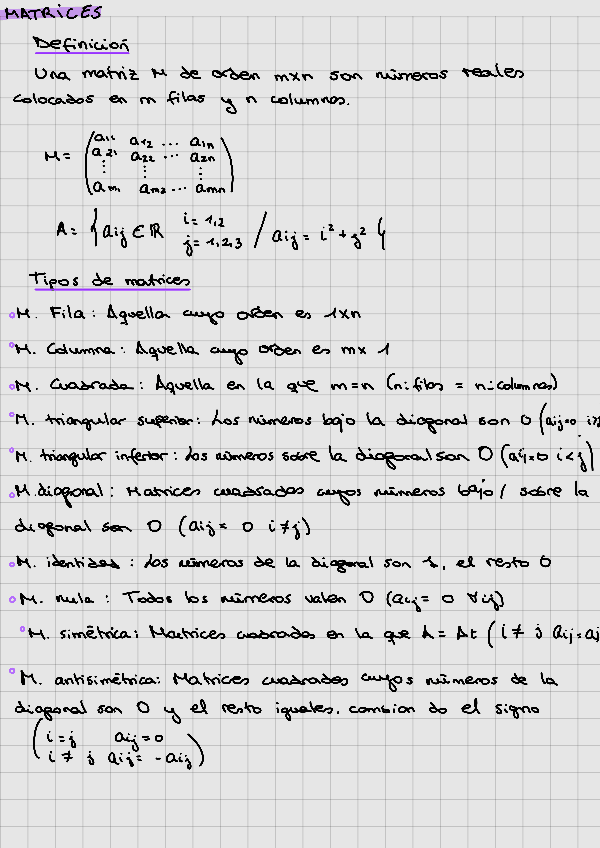 MATRICES
Definición
Una matriz M de orden mxn son números reales
colocados en m filas y n columnas.
M = (a11 a12 ... a1n
a21 a22 ... a2n
⋮ ⋮ ⋮
am1 am2 ... amn)
A = { aij ∈ ℝ i = 1,2 j = 1,2,3 / aij = i² + j² }
Tipos de matrices
M. Fila : Aquella cuyo orden es 1xn
M. Columna : Aquella cuyo orden es mx 1
M. Cuadrada : Aquella en la que m=n (n: filas = n: columnas)
M. triangular superior: Los números bajo la diagonal son 0 (aij=0 i>
M. triangular inferior: Los números sobre la diagonal son 0 (aij=0 i<j)
M. diagonal : Matrices cuadradas cuyos números bajo / sobre la
diagonal son 0 (aij = 0 i≠j)
M. identidad : Los números de la diagonal son 1, el resto 0
M. nula : Todos los números valen 0 (aij = 0 ∀ij)
M. simétrica: Matrices cuadradas en la que A = At ( i ≠ j aij=aj
M. antisimétrica: Matrices cuadradas cuyos números de la
diagonal son 0 y el resto iguales. cambian do el signo
(i = j aij = 0
i ≠ j aij = -aij)